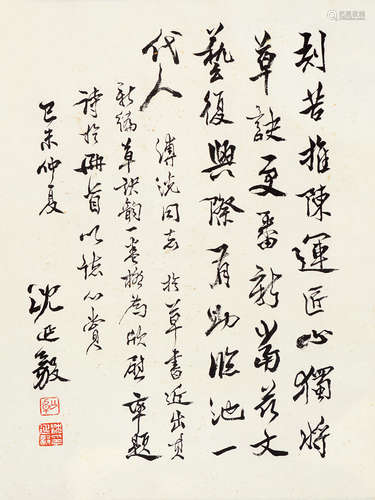 刻苦推陳運匠心獨將
草訣更番新當茲文
藝復興際有助臨池一
代人
溥浣同志於草書近出其
新編草訣韻一卷極為欣慰率题
詩於册首以誌心賞
己未仲夏
沈延毅